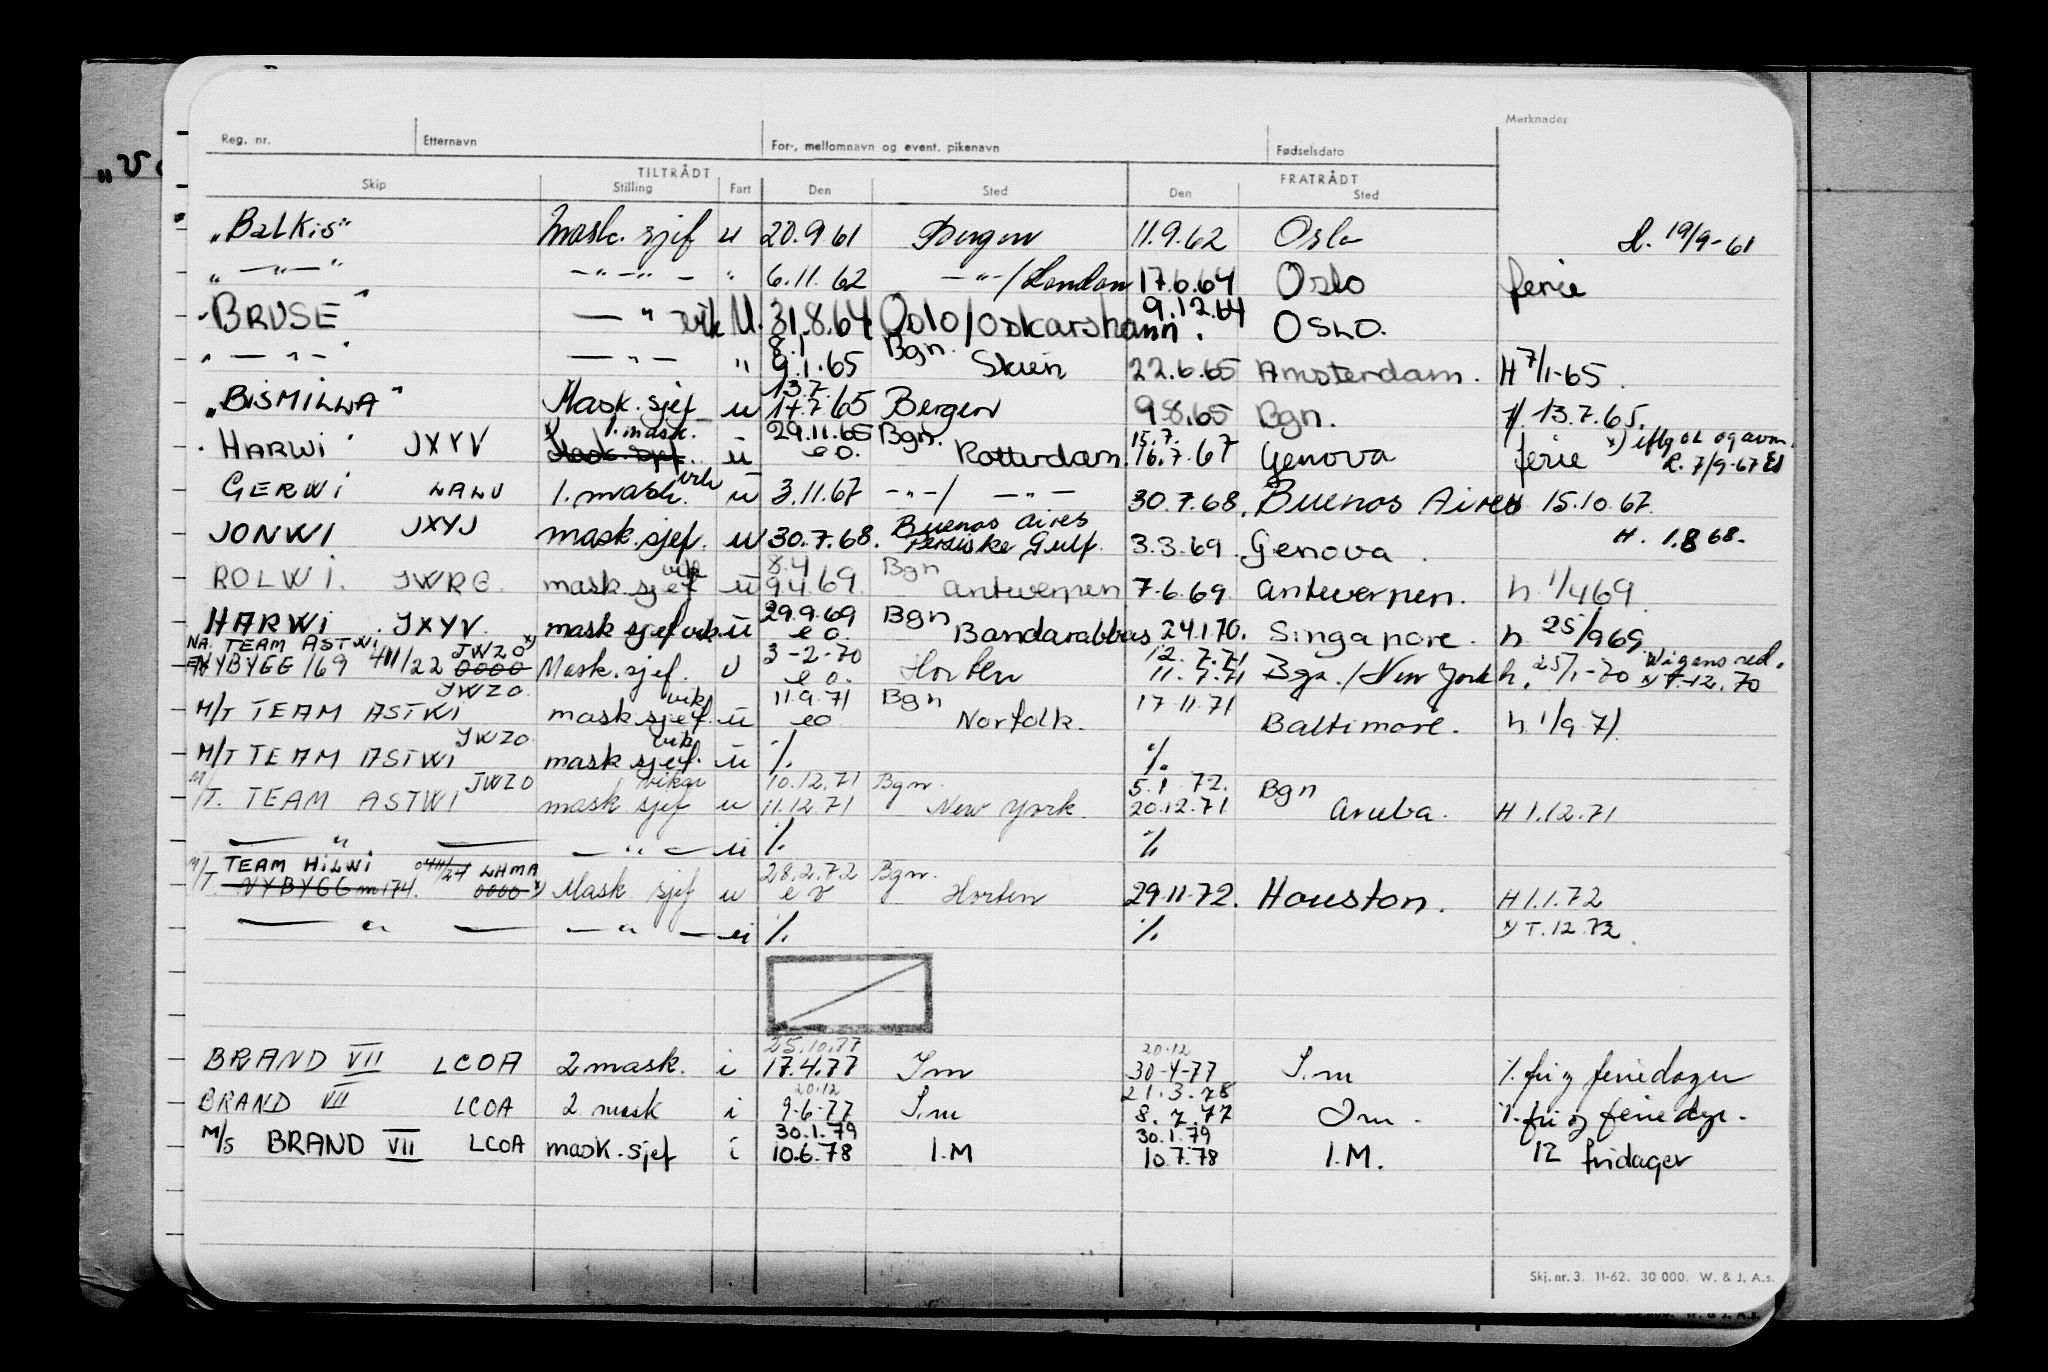 Merknader
Reg. nr. Etternavn For-, mellomnavn og event. pikenavn Fødselsdato
TILTRÅDT FRATRÅDT
Skip Stilling Fart Den Sted Den Sted
„Balkis" Mask. sjef u 20.9 61 Bergen 11.9.62 Oslo 19/9-61
„ — " — " — " — " — " 6.11.62 — " — / London 17.6.64 Oslo ferie
BRUSE" — " vik U. 31.8.64 Oslo/Oskarshamn. 9.12.64 OSLO.
" — " — " — " — " 8.1 9.1.65 Bgn. Skien 22.6.65 Amsterdam. H 7/1-65.
„BISMILLA" Mask. sjef u 13.7. 14.7 65 Bergen 9.8.65 Bgn. 13.7.65.
HARWI" JXYV x) 1. mask. Mask. sjef. u 29.11.65 e o. Bgn. Rotterdam. 15.7. 16.7.67 Genova ferie x) iflg OL og avm. R. 7/9-67
GERWI LALU 1. mask. vik u 3.11.67 - " - / — " — 30.7.68. Buenos Aires 15.10.67.
JONWI JXYJ mask. sjef. u 30.7.68. Buenos Aires Persiske Gulf. 3.3.69 Genova. H. 1.8 68.
ROLWI. JWRG. mask. sjef vik u 8.4 9.4.69. Bgn Antwerpen 7.6.69. Antwerpen. h. 1/4 69.
HARWI. JXYV. mask sjef vik u 29.9.69 e o. Bgn Bandarabbas 24.1.70. Singapore. h 25/9 69.
NA. TEAM ASTWI JWZO x)
NYBYGG 169 411/22 0000 Mask. sjef. U 3-2-70 e o. Horten 12.7.71 11.7.71 Bgn. / New York h. 25/1-70 Wigens red. x) T.12.70
M/T TEAM ASTWI JWZO. mask sjef. vik u 11.9.71 eo Bgn Norfolk. 17.11.71 Baltimore. h. 1/9.71.
M/T TEAM ASTWI JWZO. mask sjef. vik. u ./. ./.
M/T. TEAM ASTWI JWZO mask. sjef vikar u 10.12.71 11.12.71 Bgn. New York. 5.1.72. 20.12.71 Bgn Aruba. H 1.12.71
— " — — " — u ./. ./.
M/T. TEAM HILWI 0411/24 LHMA
NYBYGG nr 174. 0000 x) Mask. sjef u 28.2.72 e o Bgn. Horten 29.11.72. Houston. H 1.1.72
— " — — " — u ./. ./. x) T.12.72.
BRAND VII LCOA 2 mask. i 25.10.77 17.4.77 I m 20.12 30-4-77 I.m ./. fri og feriedager
BRAND VII LCOA 2 mask i 20.12 9-6-77 I.m 21.3.78 8.7.77 I m. ./. fri og feriedgr.
M/S BRAND VII LCOA mask. sjef i 30.1.79 10.6.78 I.M 30.1.79 10.7.78 I.M. 12 fridager
Skj. nr. 3. 11-62. 30 000. W. & J. A.s.